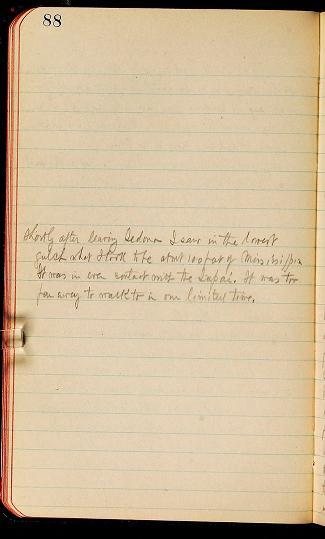 88
Shortly after leaving Sedona I saw in the lowest
gulch what I took to be about 100 feet of Mississippian
It was in even contact with the Supai. It was too
far away to walk to in our limited time.